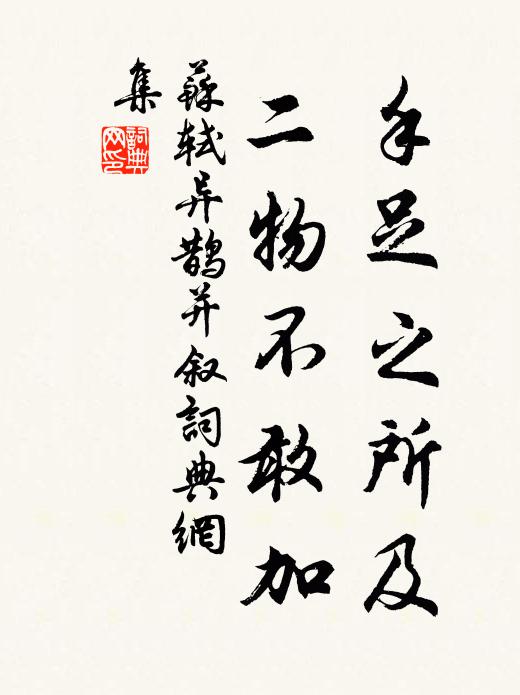 手足之所及
二物不敢加
蘇軾异鵲并叙詞典網
集
詞典
网印